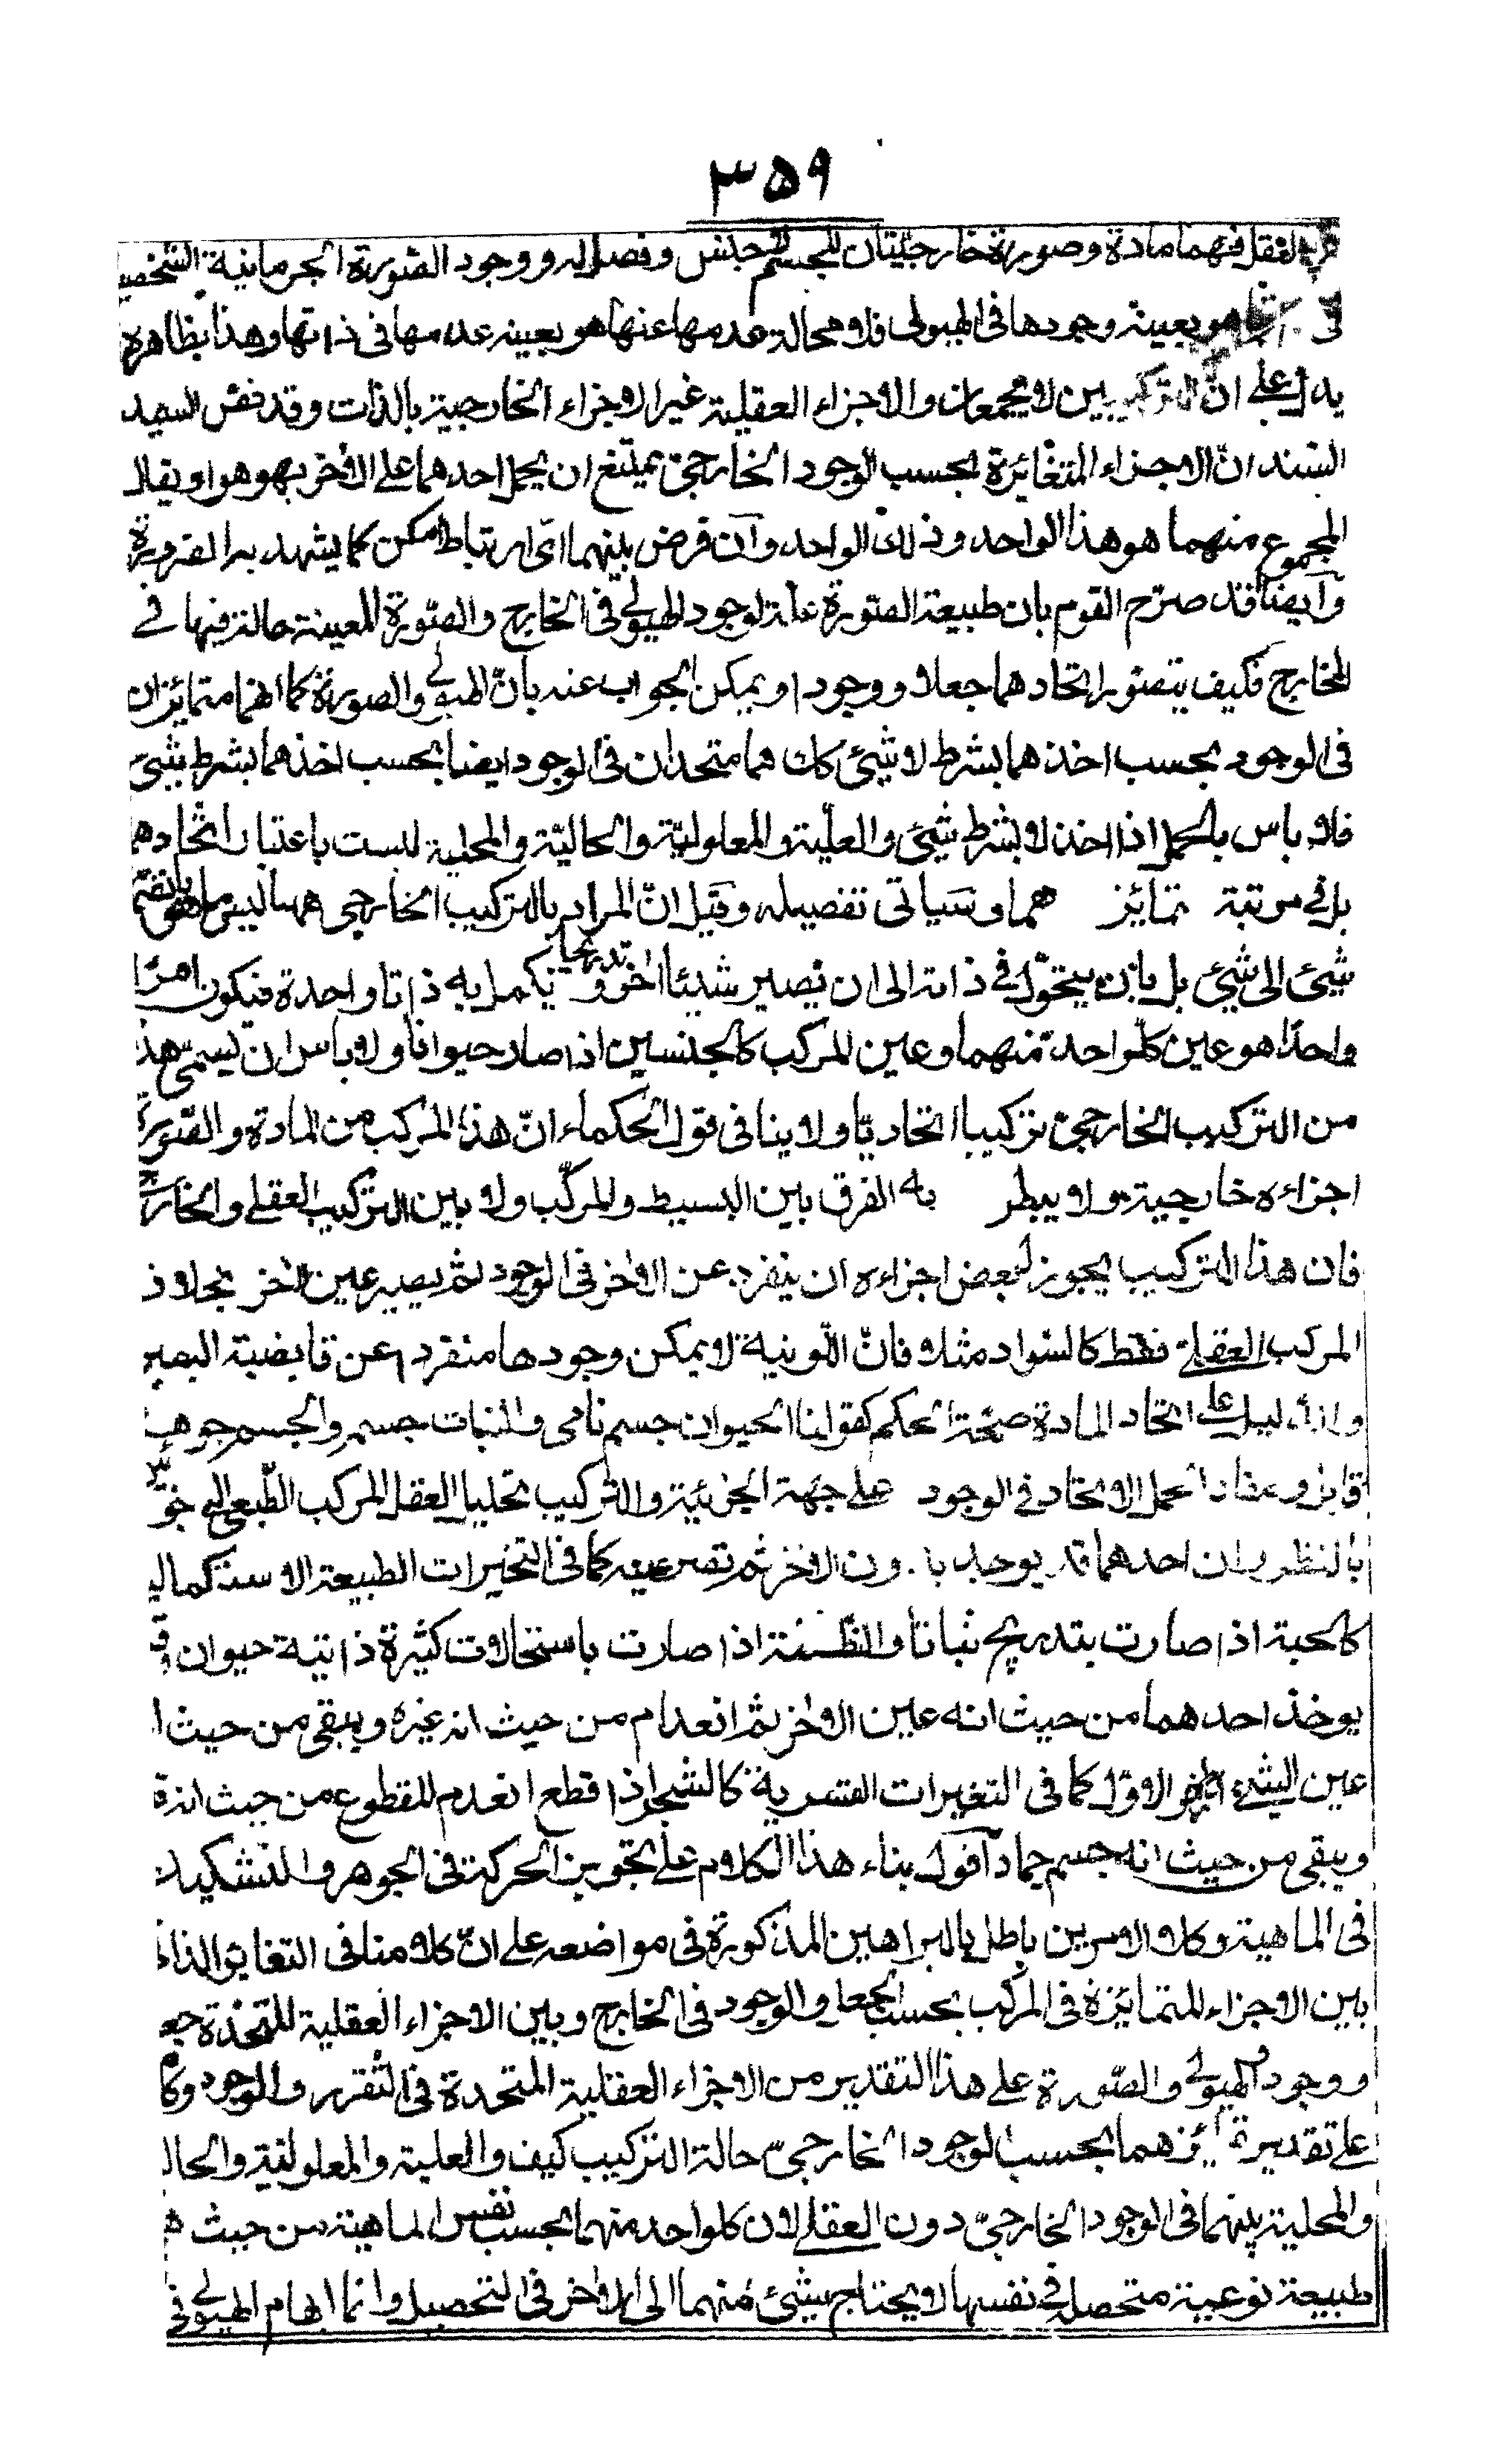 ٣٥٩
العقل فهما مادة وصورة خارجيتان للجسم لا جنس وفصل له ووجود الصورة الجرمانية الشخصية
هو بعينه وجودها فى الهيولى فلا محالة عدمها عنها هو بعينه عدمها فى ذاتها وهذا بظاهره
يدل على ان التركيبين لا يجمعان والاجزاء العقلية غير الاجزاء الخارجية بالذات وقد نص السيد
السند انّ الاجزاء المتغائرة بحسب الوجود الخارجى يمتنع ان يحمل احدهما على الاخر بهو هو او يقال
المجموع منهما هو هذا الواحد وذلك الواحد وان فرض بينهما اىّ ارتباط امكن كما يشهد به الضرورة
وايضا قد صرّح القوم بان طبيعة الصورة علة لوجود الهيولى فى الخارج والصّورة المعينة حالة فيها فى
الخارج فكيف يتصوّر اتحادهما جعلا ووجودا ويمكن الجواب عنه بانّ الهيولى والصورة كما انهما متمايزان
فى الوجود بحسب اخذهما بشرط لا شيئ كك هما متحدان فى الوجود ايضا بحسب اخذهما بشرط شيئ
فلا باس بالحمل اذا اخذ لا بشرط شيئ والعليّة والمعلوليّة والحاليّة والمحلية ليست باعتبار اتحادهما
بل فى مرتبة تمائز هما وسياتى تفصيله وقيل انّ المراد بالتركيب الخارجى ههنا ليس ما هو بانضم
شيئ الى شيئ بل بان يتحوّل فى ذاته الى ان يصير شيئا اخر تدريجا و يكمل به ذاتا واحدة فيكون امرًا
واحدًا هو عين كل واحد منهما وعين المركب كالجنسين اذا صار حيوانا ولا باس ان يسمىّ هذا
من التركيب الخارجىّ تركيبا اتحاديّا ولا ينافى قول الحكماء انّ هذا المركب من المادة والصّورة
اجزاءه خارجية ولا يبطر به الفرق بين البسيط والمركّب ولا بين التركيب العقلى والخارجى
فان هذا التركيب يجوز لبعض اجزاءه ان ينفرد عن الاخر فى الوجود ثم يصير عين الاخر بخلاف
المركب العقلى فقط كالسّواد مثلا فانّ اللّونية لا يمكن وجودها منفردا عن قابضية البصر
والدليل على اتحاد المادة صحّة الحكم كقولنا الحيوان جسم نامى والنبات جسم والجسم جوهر
قابل ومفاد الحمل الاتحاد فى الوجود على جهة الجزئية والتركيب تحليل العقل المركب الطّبعى الى جزئين
بالنظر الى ان احدهما قد يوجد بدون الاخر ثم تصير عينه كما فى التغيرات الطبيعة الاستكمالية
كالحبة اذا صارت بتدريج نباتا والنطفة اذا صارت باستحالات كثيرة ذاتية حيوان وقد
يوخذ احدهما من حيث انه عين الاخر ثم انعدام من حيث انه غيره ويبقى من حيث ا
عين الشئ الاخر الاوّل كما فى التغيرات القسرية كالشجر اذا قطع انعدم المقطوع من حيث انه
ويبقى من حيث انه جسم جماد اقول بناء هذا الكلام على تجويز الحركة فى الجوهر والتشكيك
فى الماهية وكلا الامرين باطل بالبراهين المذكورة فى مواضعه على انّ كلامنا فى التغاير الذاتى
بين الاجزاء المتمائزة فى المركب بحسب الجعل والوجود فى الخارج وبين الاجزاء العقلية المتحدة جعلا
ووجودا والهيولى والصّورة على هذا التقدير من الاجزاء العقلية المتحدة فى التقرر والوجود وكلا
على تقدير تمائزهما بحسب الوجود الخارجىّ حالة التركيب كيف والعلية والمعلولية والحالية
والمحلية بينهما فى الوجود الخارجىّ دون العقلى لان كل واحد منهما بحسب نفس الماهية من حيث ه
طبيعة نوعية متحصلة فى نفسها لا يحتاج شيئ منهما الى الاخر فى التحصيل وانما ابهام الهيولى فى